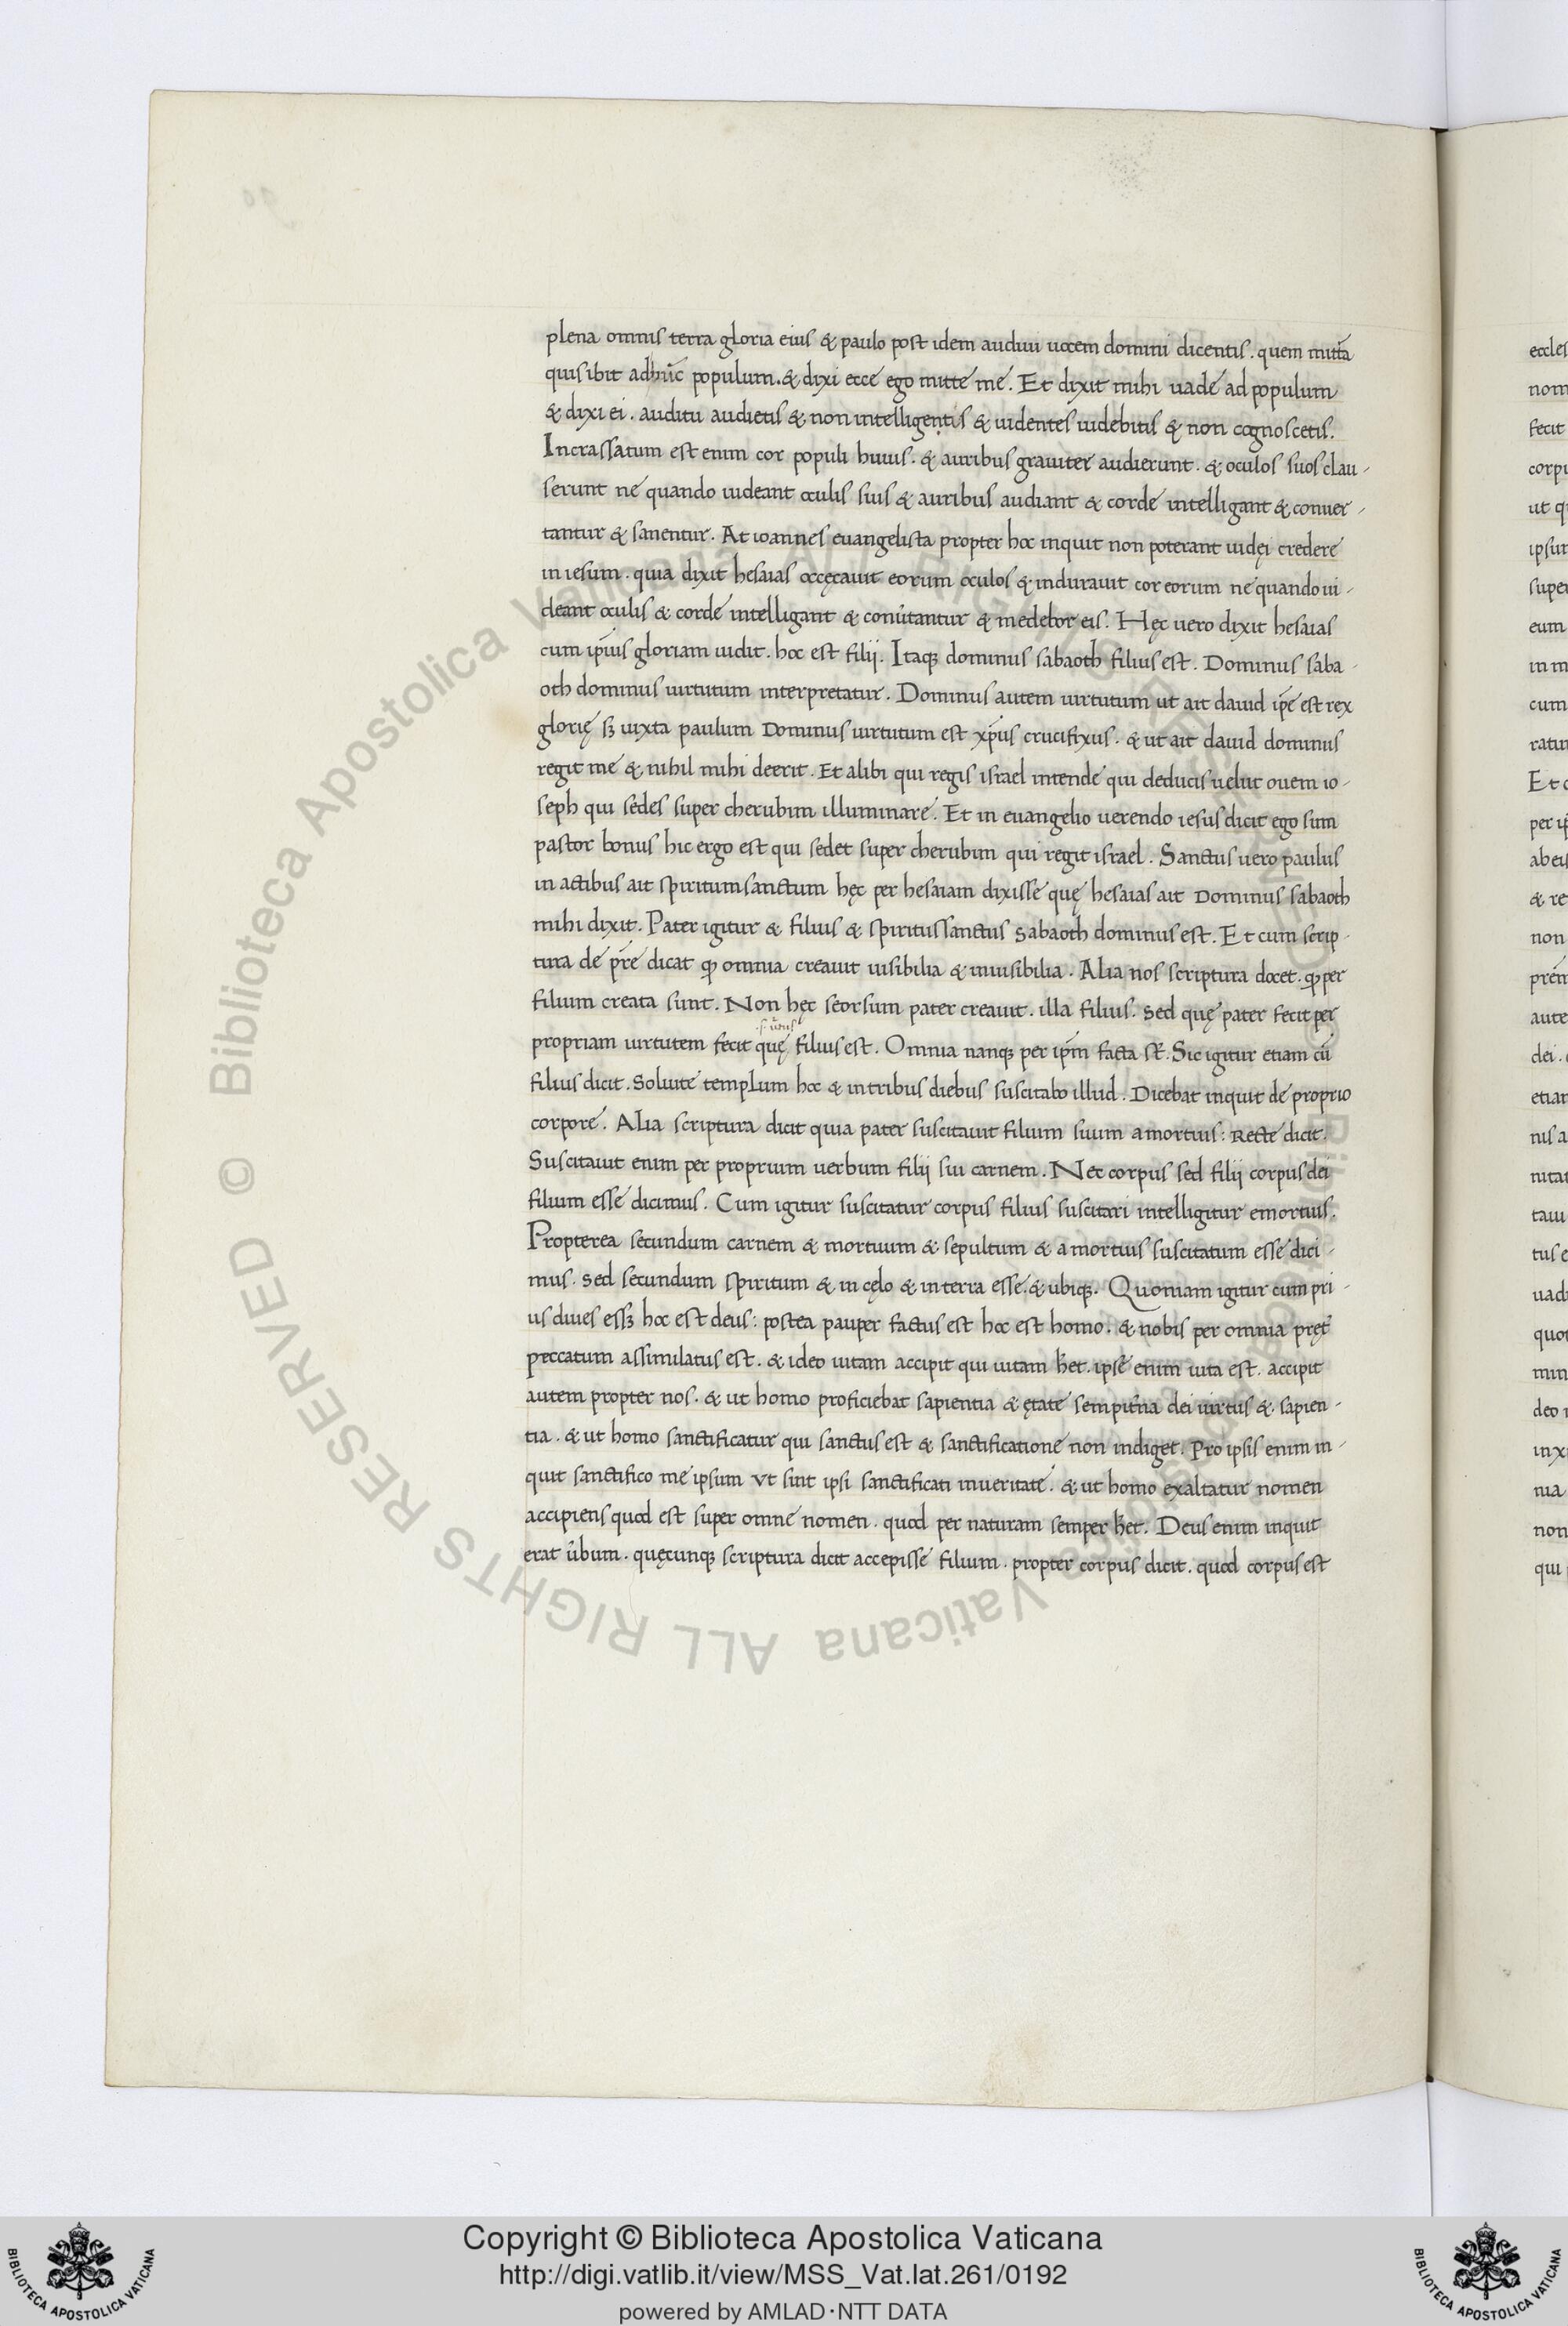 plena omnis terra gloria eius & paulo post idem audiui uocem domini dicentis . quem mittā
quis ibit ad hūc populum . & dixi ecce ego mitte me . Et dixit mihi uade ad populum
& dixi ei . auditu audietis & non intelligentis & uidentes uidebitis & non cognoscetis .
Incrassatum est enim cor populi huius . & auribus grauiter audierunt . & oculos suos clau -
serunt ne quando uideant oculis suis & auribus audiant & corde intelligant & conuer -
tantur & sanentur . At ioannes euangelista propter hoc inquit non poterant uidęi credere
in iesum . quia dixit hesaias occęcauit eorum oculos & indurauit cor eorum ne quando ui -
deant oculis & corde intelligant & conũtantur & medebor eis . Hęc uero dixit hesaias
cum ip̄ius gloriam uidit . hoc est filij . Itaqꝫ dominus sabaoth filius est . Dominus saba -
oth dominus uirtutum interpretatur . Dominus autem uirtutum ut ait dauid ip̄e est rex
glorię sꝫ iuxta paulum Dominus uirtutum est xp̄us crucifixus . & ut ait dauid dominus
regit me & nihil mihi deerit . Et alibi qui regis israel intende qui deducis uelut ouem io -
seph qui sedes super cherubim illuminare . Et in euangelio uerendo iesus dicit ego sum
pastor bonus hic ergo est qui sedet super cherubim qui regit israel . Sanctus uero paulus
in actibus ait spiritum sanctum hęc per hesaiam dixisse quę hesaias ait Dominus sabaoth
mihi dixit . Pater igitur & filius & spiritus sanctus sabaoth dominus est . Et cum scrip -
tura de pr̄e dicat ꝙ omnia creauit uisibilia & inuisibilia . Alia nos scriptura docet . ꝙ per
filium creata sunt . Non hęc seorsum pater creauit . illa filius . sed quę pater fecit per
propriam uirtutem fecit quę filius est . Omnia nanqꝫ per ip̄m facta st̄ . Sic igitur etiam cū
filius dicit . Soluite templum hoc & in tribus diebus suscitabo illud . Dicebat inquit de proprio
corpore . Alia scriptura dicit quia pater suscitauit filium suum a mortuis : Recte dicit .
Suscitauit enim per proprium uerbum filij sui carnem . Nec corpus sed filij corpus dei
filium esse dicimus . Cum igitur suscitatur corpus filius suscitari intelligitur e mortuis .
Propterea secundum carnem & mortuum & sepultum & a mortuis suscitatum esse dici -
mus . sed secundum spiritum & in cęlo & in terra esse . & ubiqꝫ . Quoniam igitur cum pri -
us diues essꝫ hoc est deus : postea pauper factus est hoc est homo . & nobis per omnia pręt̄
peccatum assimilatus est . & ideo uitam accipit qui uitam h̄et . ipse enim uita est . accipit
autem propter nos . & ut homo proficiebat sapientia & ętate sempit̃na dei uirtus & sapien -
tia . & ut homo sanctificatur qui sanctus est & sanctificatione non indiget . Pro ipsis enim in -
quit sanctifico me ipsum vt sint ipsi sanctificati in ueritate . & ut homo exaltatur nomen
accipiens quod est super omne nomen . quod per naturam semper h̄et . Deus enim inquit
erat ũbum . quęcunqꝫ scriptura dicit accepisse filium . propter corpus dicit . quod corpus est
eccles
nom
fecit
corpu
ut q
ipsum
super
eum
in m
cum
ratu
Et c
per ip̄
ab eis
& re
non
prēm
aute
dei .
etiam
nis a
nitat
taui
tus e
uad
quot
min
deo
in x
nia
non
qui
© Biblioteca Apostolica Vaticana ALL RIGHTS RESERVED
Copyright © Biblioteca Apostolica Vaticana
http://digi.vatlib.it/view/MSS_Vat.lat.261/0192
powered by AMLAD·NTT DATA
BIBLIOTECA APOSTOLICA VATICANA
BIBLIOTECA APOSTOLICA VATICANA